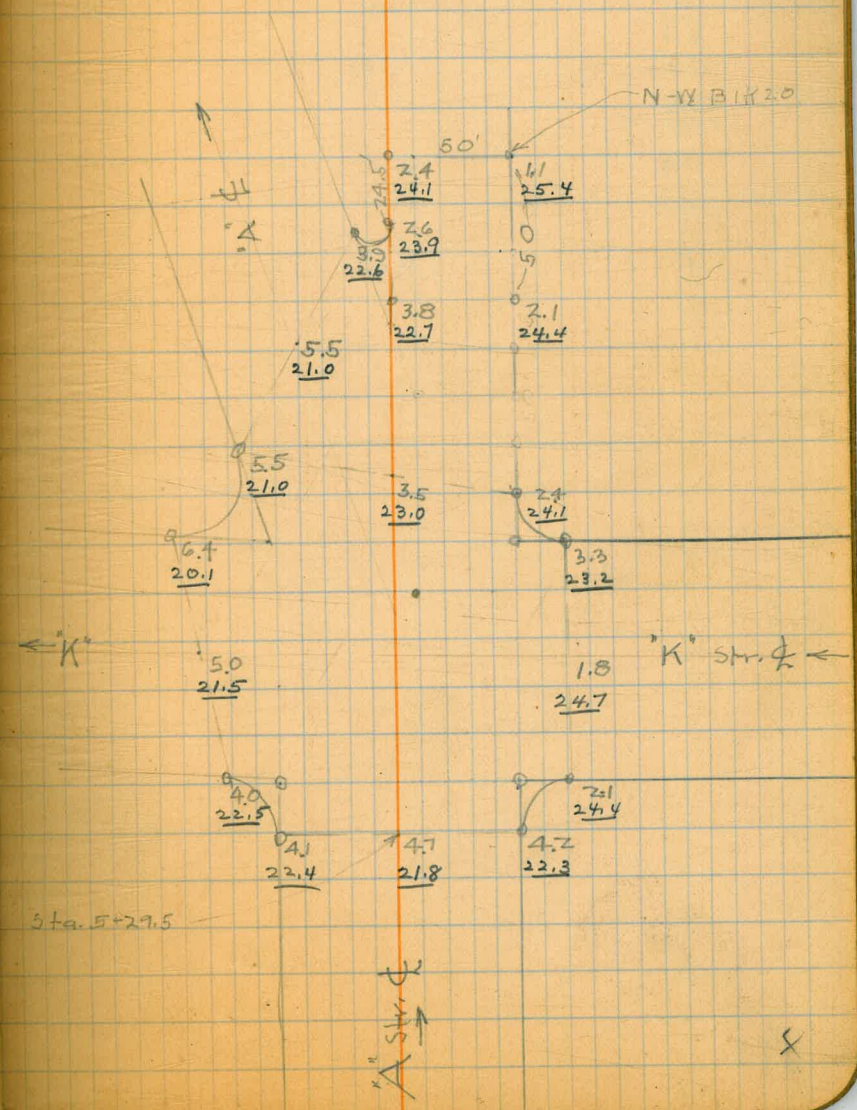 N-W Blk 20
50'
24.5'
2.4
24.1
1.1
25.4
2.6
23.9
3.9
22.6
50
3.8
22.7
2.1
24.4
5.5
21.0
5.5
21.0
3.5
23.0
2.4
24.1
6.4
20.1
3.3
23.2
← "K"
"K" Str. ℄ ←
5.0
21.5
1.8
24.7
4.0
22.5
2.1
24.4
4.1
22.4
4.7
21.8
4.2
22.3
Sta. 5+29.5
"A" Str. ℄ →